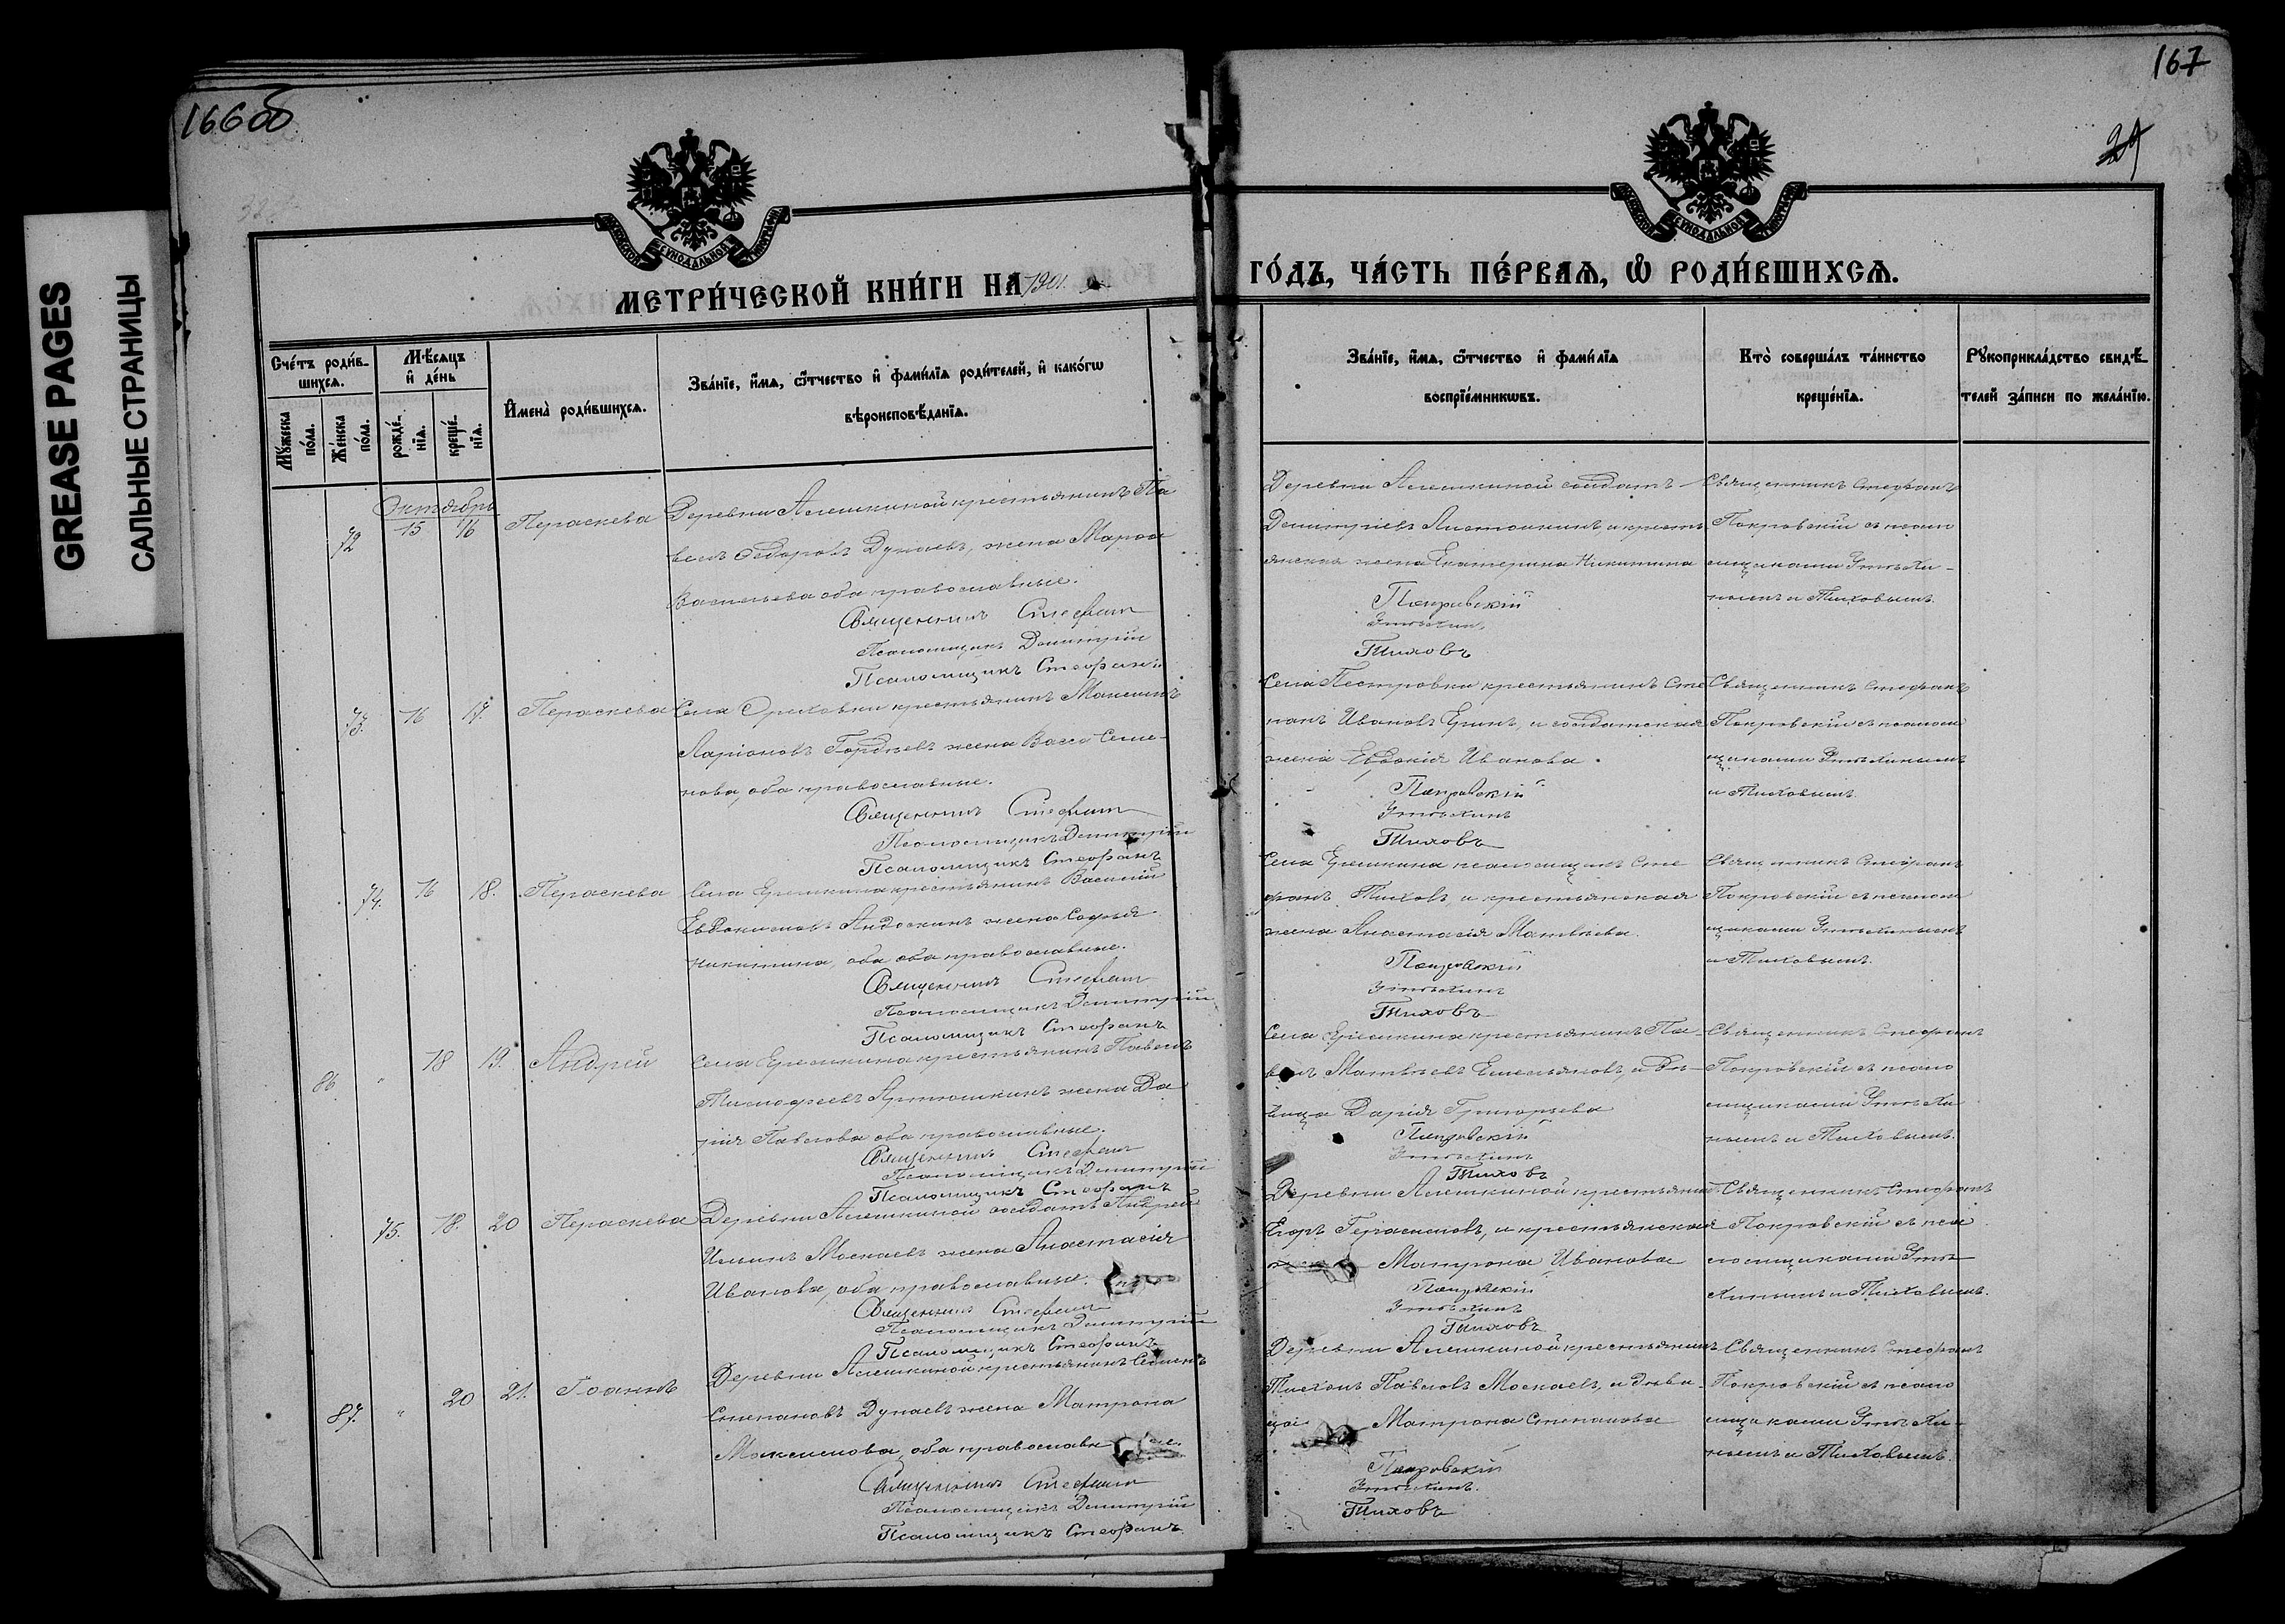 166об
167
29
GREASE PAGES
САЛЬНЫЕ СТРАНИЦЫ
МОСКОВСКОЙ СѴНОДАЛЬНОЙ ТИПОГРАФІИ
МОСКОВСКОЙ СѴНОДАЛЬНОЙ ТИПОГРАФІИ
МЕТРИ́ЧЕСКОЙ КНИ́ГИ НА 1901
ГО́ДЪ, ЧА́СТЬ ПЕ́РВАЯ, Ѡ РОДИ́ВШИХСЯ.
Сче́тъ роди́в-
шихся.
Мѣ́сяцъ
и де́нь
Мꙋ́жеска
по́ла.
Же́нска
по́ла.
рожде́-
нїя.
креще́-
нїя.
Имена̀ роди́вшихся.
Зва́нїе, и́мя, ѻ́тчество и фами́лїя роди́телей, и како́гѡ
вѣроисповѣ́данїя.
Зва́нїе, и́мя, ѻ́тчество и фами́лїя
воспрїе́мникѡвъ.
Кто̀ соверша́лъ та́инство
креще́нїя.
Рꙋкоприкла́дство свидѣ́-
телей за́писи по жела́нїю.
Октябрь
72 15 16 Параскева
Деревни Алешкиной крестьянинъ Па
велъ Ѳедоровъ Дунаевъ, жена Марѳа
Васильева оба православные.
Священникъ Стефанъ
Псаломщикъ Димитрій
Псаломщикъ Стефанъ
Деревни Алешкиной солдатъ
Димитріевъ Листошкинъ, и кресть
янская жена Екатерина Никитина
Покровскій
Утѣхинъ
Тиховъ
Священникъ Стефанъ
Покровскій съ псалом
щиками Утѣхи-
нымъ и Тиховымъ.
73. 16 17. Параскева
Села Ореховки крестьянинъ Максимъ
Ларіоновъ Гордѣевъ жена Васса Семе-
нова, оба православные.
Священникъ Стефанъ
Псаломщикъ Димитрій
Псаломщикъ Стефанъ
Села Пестровки крестьянинъ Сте
панъ Ивановъ Еринъ, и солдатская
жена Евдокія Иванова.
Покровскій
Утѣхинъ
Тиховъ
Священникъ Стефанъ
Покровскій съ псалом
щиками Утѣхинымъ
и Тиховымъ.
74. 16 18. Параскева
Села Еремкина крестьянинъ Василій
Евдокимовъ Андоскинъ жена Софья
Никитина, оба оба православные.
Священникъ Стефанъ
Псаломщикъ Димитрій
Псаломщикъ Стефанъ
Села Еремкина псаломщикъ Сте
фанъ Тиховъ, и крестьянская
жена Анастасія Матвѣева.
Покровскій
Утѣхинъ
Тиховъ
Священникъ Стефанъ
Покровскій съ псалом
щиками Утѣхинымъ
и Тиховымъ.
86 " 18 19. Андрей
Села Еремкина крестьянинъ Павелъ
Тимофеевъ Артюшкинъ жена Да
рія Павлова оба православные.
Священникъ Стефанъ
Псаломщикъ Димитрій
Псаломщикъ Стефанъ
Села Еремкина крестьянинъ Па-
велъ Матвѣевъ Емельяновъ, и дѣ-
вица Дарія Григорьева
Покровскій
Утѣхинъ
Тиховъ
Священникъ Стефанъ
Покровскій съ псало
мщиками Утѣхи
нымъ и Тиховымъ.
75. 18. 20 Параскева
Деревни Алешкиной солдатъ Андрей
Ильинъ Москаевъ жена Анастасія
Иванова, оба православные.
Священникъ Стефанъ
Псаломщикъ Димитрій
Псаломщикъ Стефанъ
Деревни Алешкиной крестьянинъ
Егоръ Герасимовъ, и крестьянская
Матрона Иванова
Покровскій
Утѣхинъ
Тиховъ
Священникъ Стефанъ
Покровскій съ пса
ломщиками Утѣ
хинымъ и Тиховымъ.
87. " 20 21. Іоаннъ
Деревни Алешкиной крестьянинъ Семенъ
Степановъ Дунаевъ жена Матрона
Максимова, оба православн
Священникъ Стефанъ
Псаломщикъ Димитрій
Псаломщикъ Стефанъ
Деревни Алешкиной крестьянинъ
Тихонъ Павловъ Москаевъ, и дѣви-
ца Матрона Степанова
Покровскій
Утѣхинъ.
Тиховъ
Священникъ Стефанъ
Покровскій съ псало
мщиками Утѣхи-
нымъ и Тиховымъ.